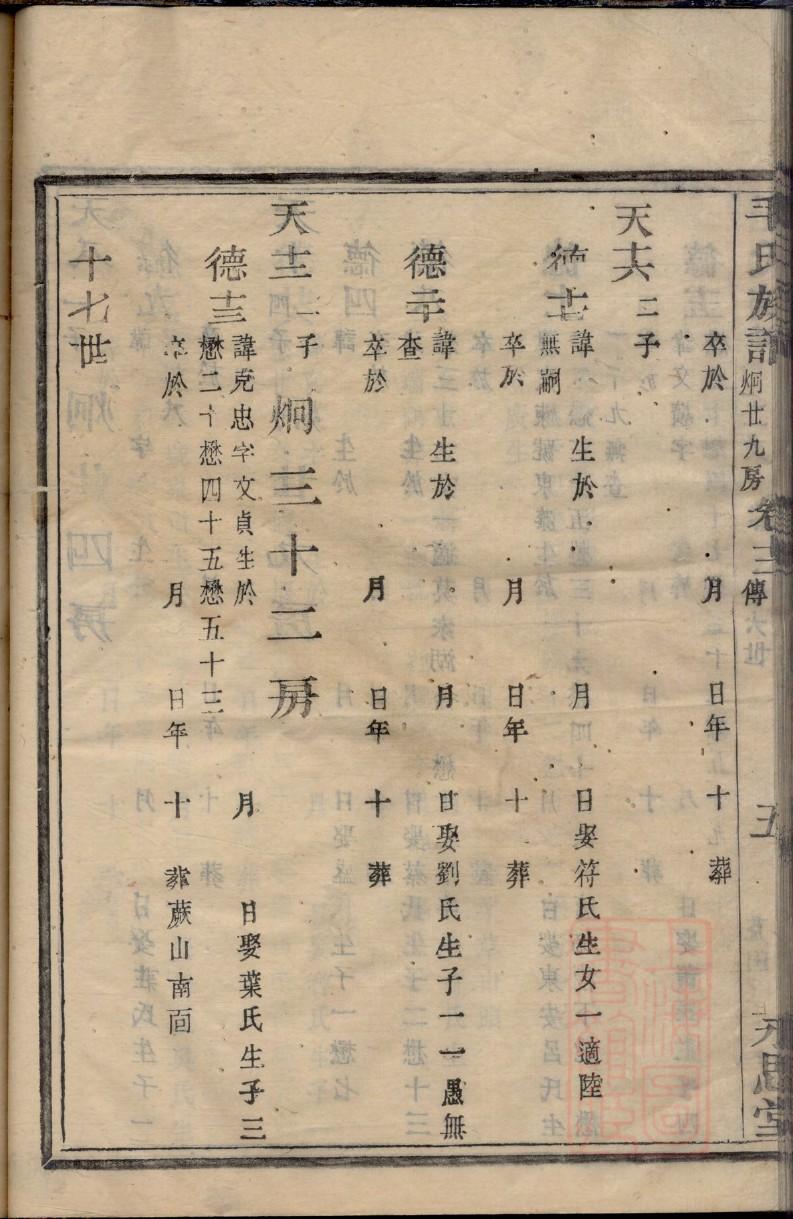 毛氏族譜 炯廿九房 卷十三 傳 五 永思堂
卒於 月 日年 十 葬
天十六 二子
德十一 諱 生於 月 日娶符氏生女一適陸
無嗣
卒於 月 日年 十 葬
德二十 諱 生於 月 日娶劉氏生子一一愚無
查
卒於 月 日年 十 葬
天十二 二子 炯三十二房
德十三 諱克忠字文貞生於 月 日娶葉氏生子三
懋二十懋四十五懋五十三
卒於 月 日年 十 葬蕨山南面
十七世